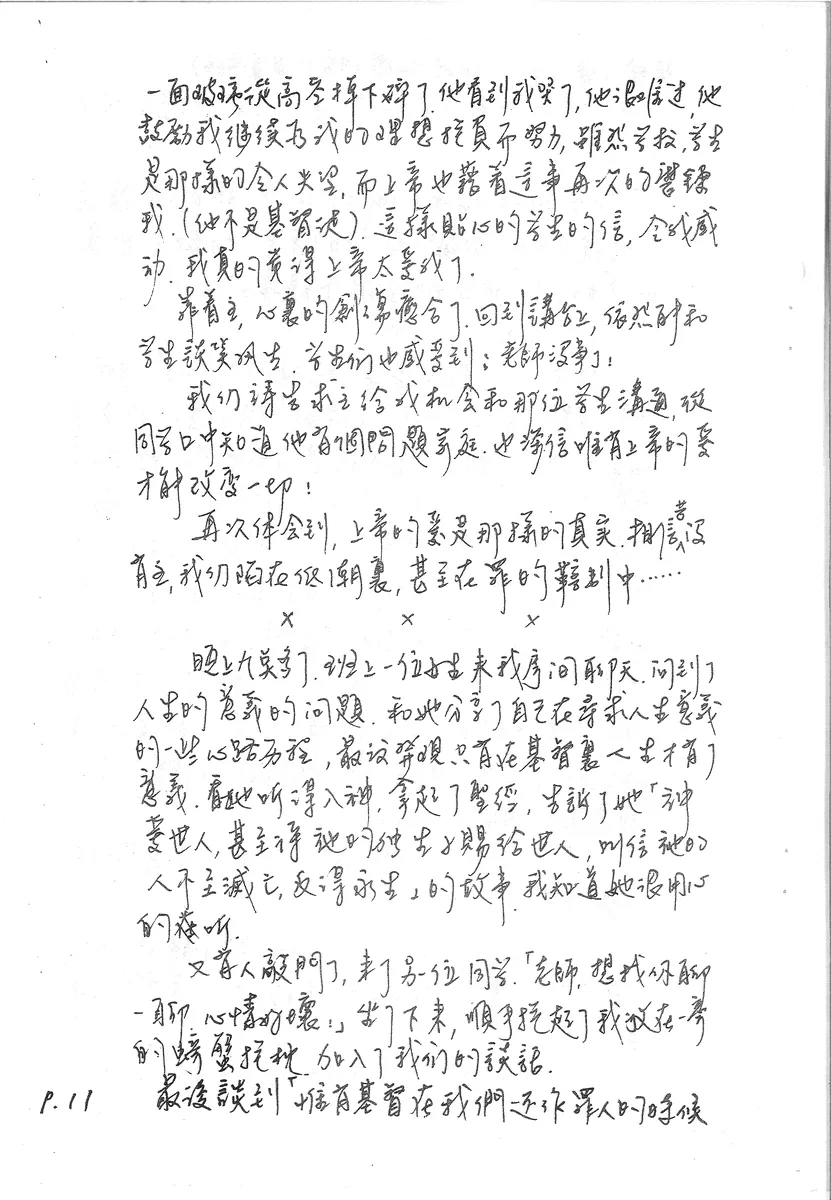 一面玻璃從高空掉下碎了.他看到我哭了,他很难过,他
鼓励我继续为我的理想抱負而努力,雖然学校,学生
是那樣的令人失望,而上帝也藉着這事再次的鍛鍊
我.(他不是基督徒).這樣貼心的学生的信,令我感
动.我真的覚得上帝太愛我了.
靠着主,心裏的創傷癒合了.回到講台上,依然能和
学生談笑风生.学生们也感受到:老師没事了!
我们禱告求主给我机会和那位学生溝通,從
同学口中知道他有個問題家庭.也深信唯有上帝的愛
才能改变一切!
再次体会到,上帝的愛是那樣的真实.相信若没
有主,我们陷在低潮裏,甚至在罪的轄制中……
× × ×
晚上九点多了.班上一位女生来我房间聊天.问到了
人生的意義的问題.和她分享了自己在尋求人生意義
的一些心路历程,最後發現只有在基督裏人生才有了
意義.看她听得入神,拿起了聖經,告訴了她「神
愛世人,甚至将祂的独生子賜給世人,叫信祂的
人不至滅亡,反得永生」的故事.我知道她很用心
的在听.
又有人敲門了,来了另一位同学.「老師,想找你聊
一聊,心情好壞!」坐了下来,順手抱起了我放在一旁
的螃蟹抱枕.加入了我们的談話.
最後談到「惟有基督在我們还作罪人的時候
P.11